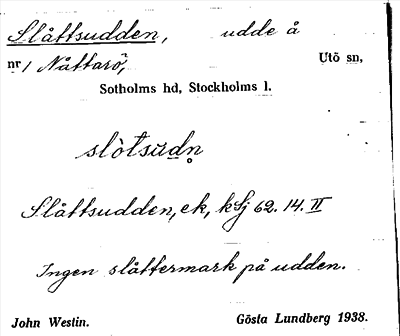 Slåttsudden, udde å
nr 1 Nåttarö, Utö sn,
Sotholms hd, Stockholms l.
slòtsùdn̥
Slåttsudden, ek, kSj 62. 14. II
Ingen slåttermark på udden.
John Westin. Gösta Lundberg 1938.